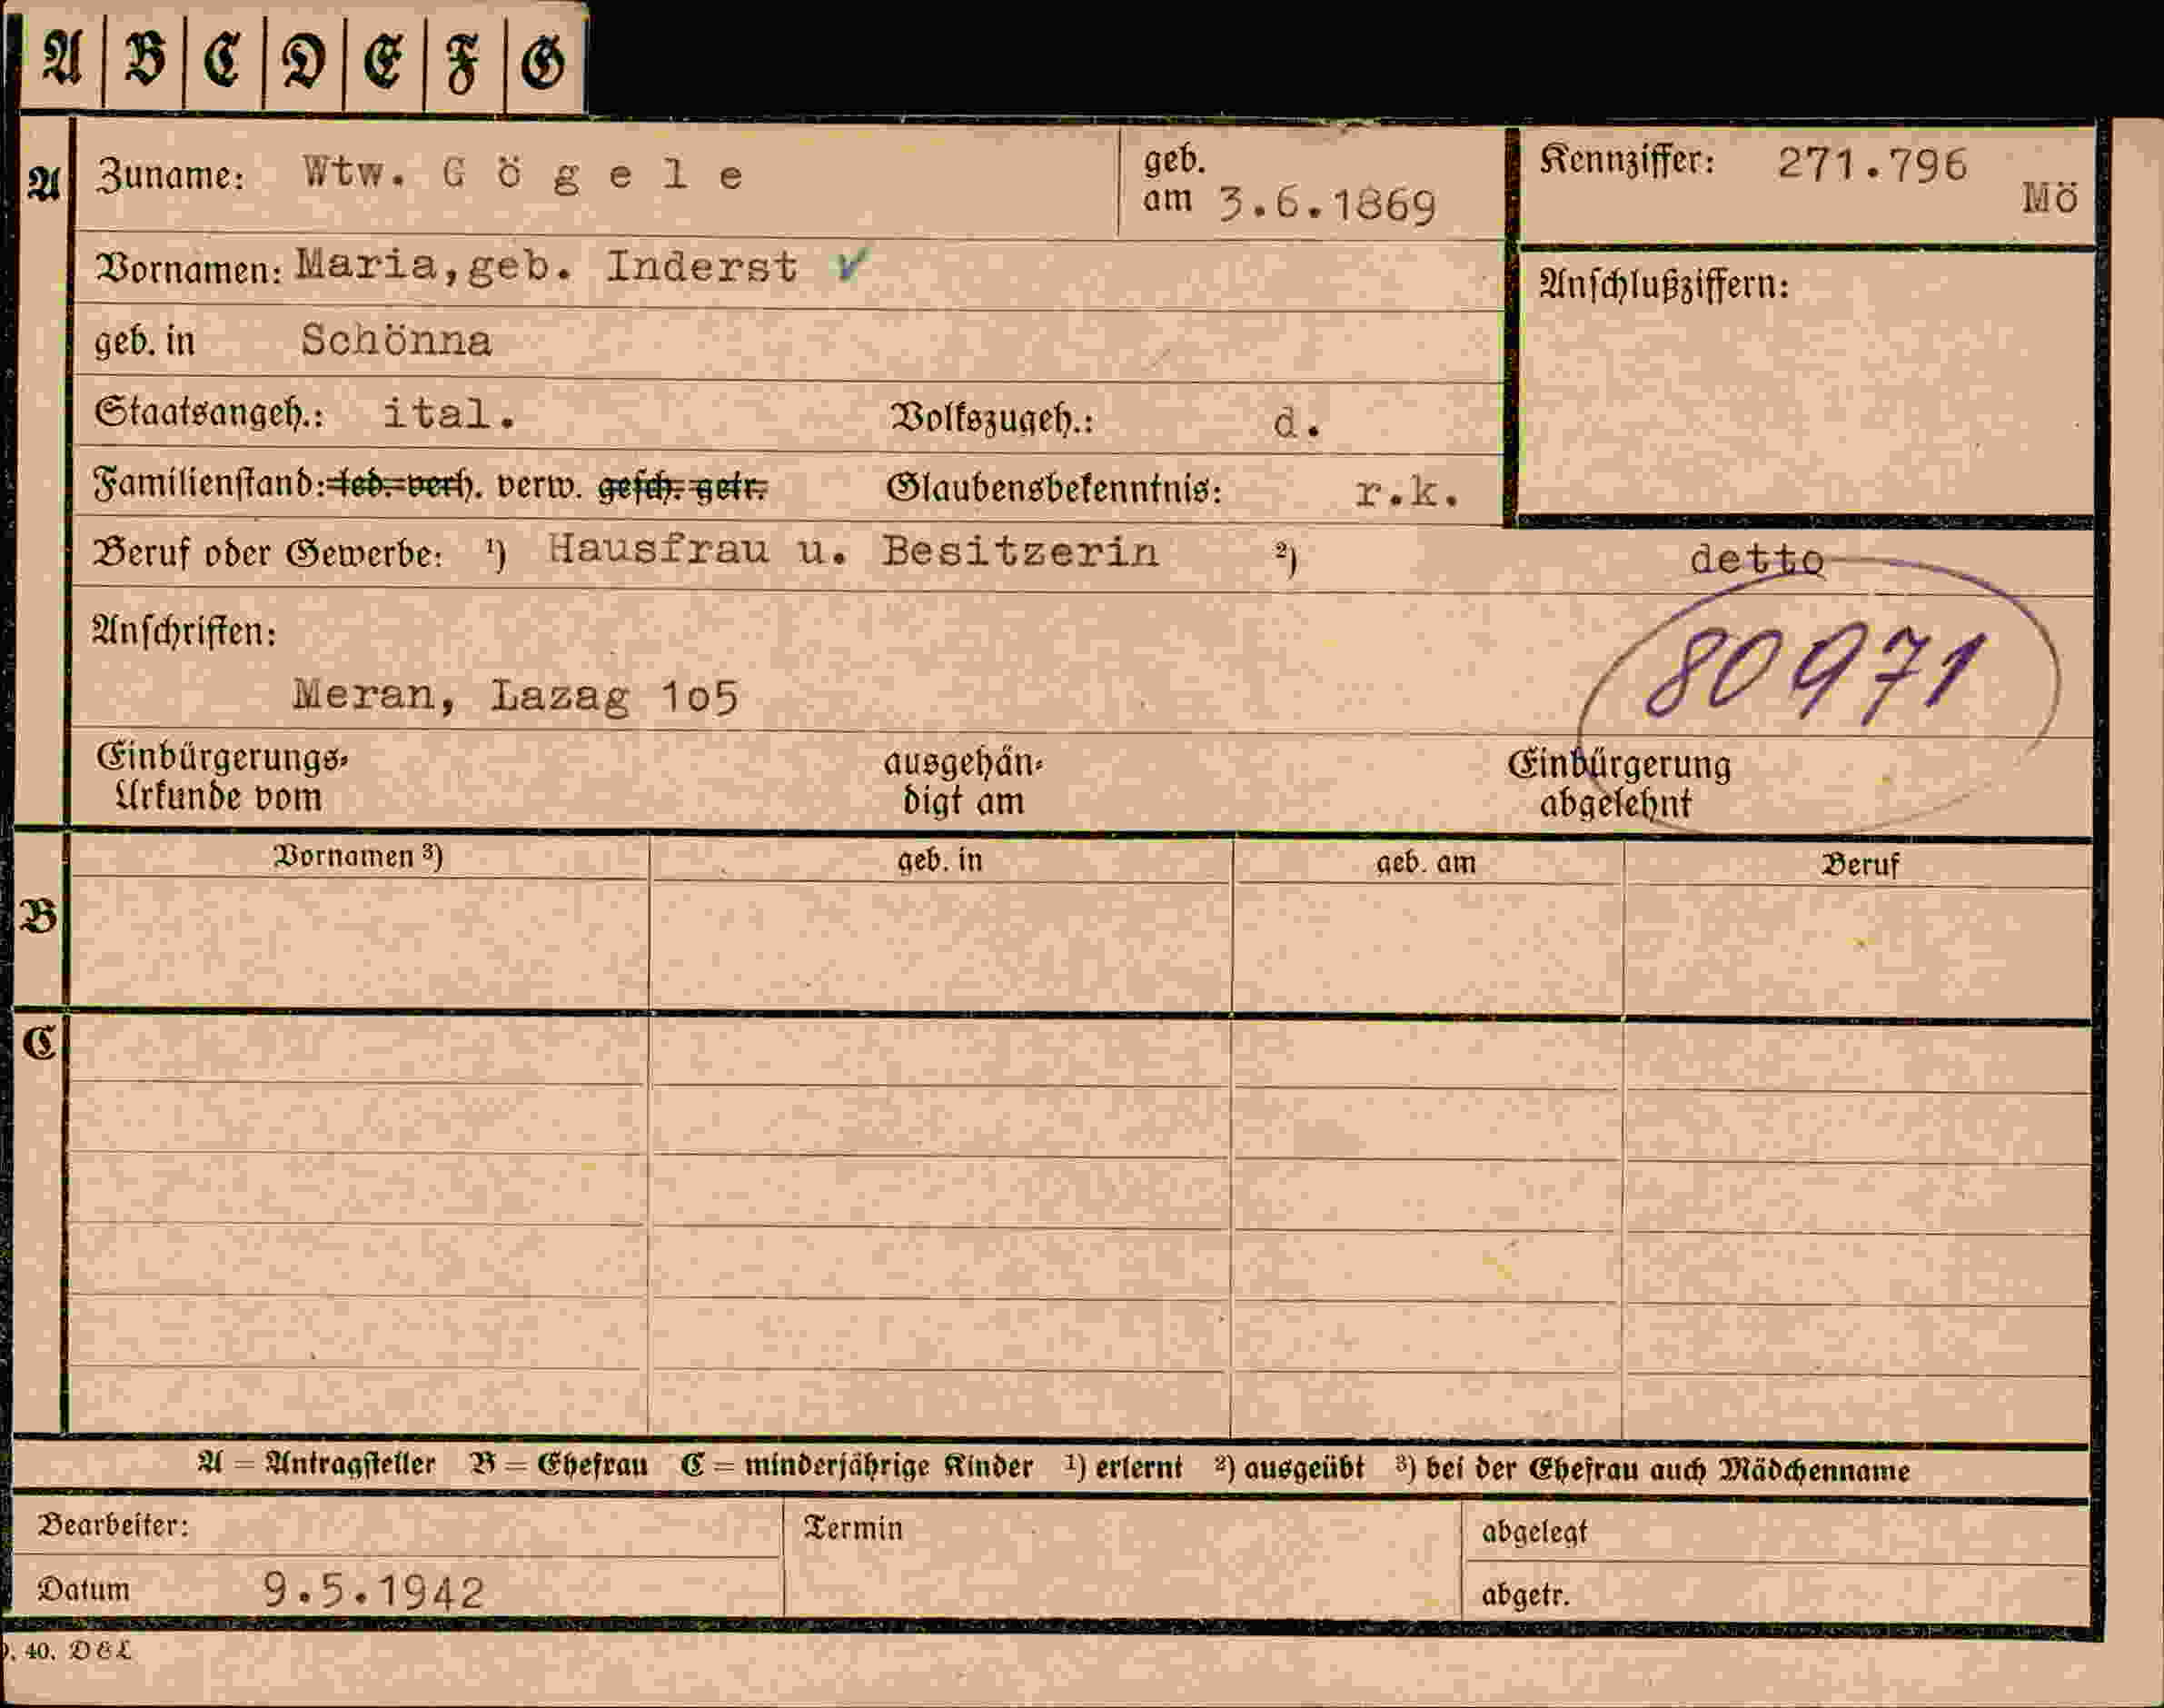 A B C D E F G
A Zuname: Wtw. G ö g e l e geb. am 3.6.1869 Kennziffer: 271.796 Mö
Vornamen: Maria,geb. Inderst ✓ Anschlußziffern:
geb. in Schönna
Staatsangeh.: ital. Volkszugeh.: d.
Familienstand: led. verh. verw. gesch. getr. Glaubensbekenntnis: r.k.
Beruf oder Gewerbe: ¹) Hausfrau u. Besitzerin ²) detto
Anschriften:
80971
Meran, Lazag 1o5
Einbürgerungs- ausgehän- Einbürgerung
Urkunde vom digt am abgelehnt
Vornamen ³) geb. in geb. am Beruf
B
C
A = Antragsteller B = Ehefrau C = minderjährige Kinder ¹) erlernt ²) ausgeübt ³) bei der Ehefrau auch Mädchenname
Bearbeiter: Termin abgelegt
Datum 9.5.1942 abgetr.
. 40. D&L